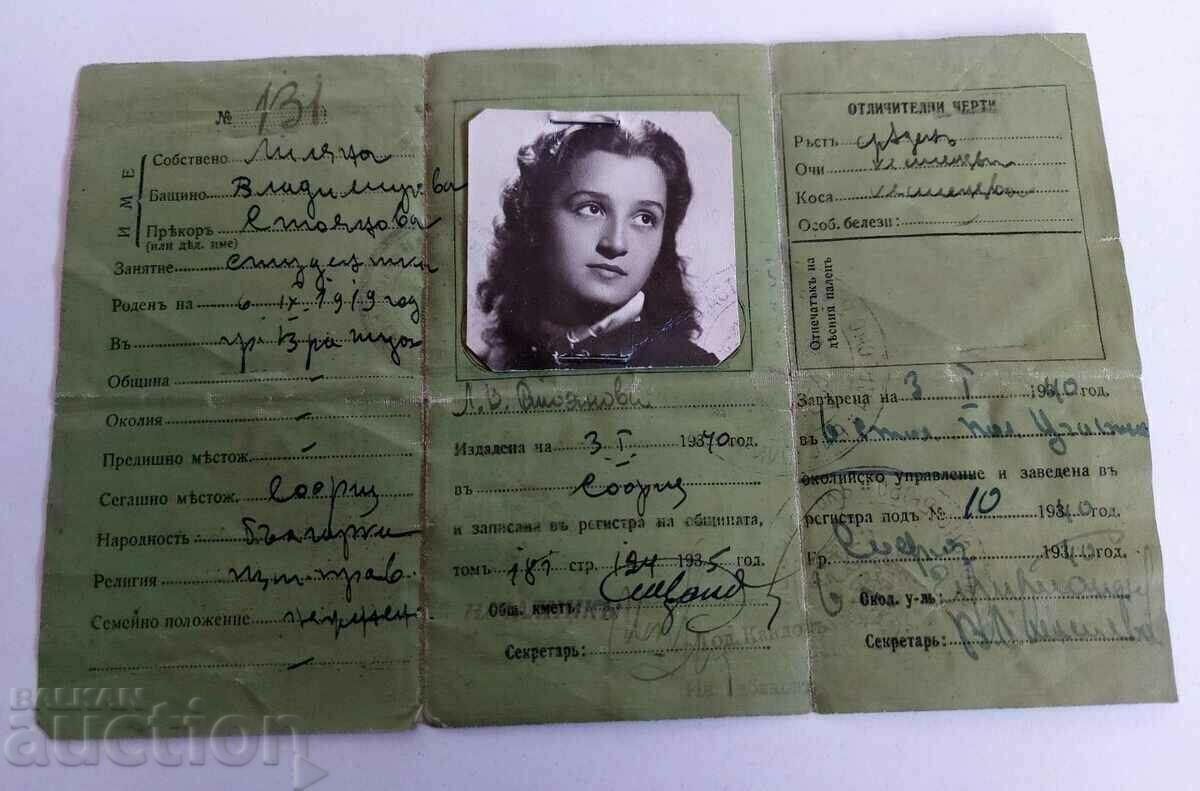 № 131
ИМЕ
Собствено Лиляна
Бащино Владимирова
Прѣкоръ Стоянова
(или дѣл. име)
Занятие студентка
Роденъ на 6 IX 1919 год
Въ гр. Враца
Община –
Околия –
Предишно мѣстож. –
Сегашно мѣстож. София
Народность българка
Религия изт. прав.
Семейно положение
Л. В. Стоянова
Издадена на 3 I 1940 год.
въ София
и записана въ регистра на общината,
томъ 181 стр. 1935 год.
Общ. кметъ:
Секретарь:
ОТЛИЧИТЕЛНИ ЧЕРТИ
Ръстъ срѣденъ
Очи кестеневи
Коса кестенева
Особ. белези: –
Отпечатъкъ на
дѣсния паленъ
Завѣрена на 3 I 1940 год.
въ 6
околийско управление и заведена въ
регистра подъ № 10 1940 год.
Гр. София 1940 год.
Окол. у-ль:
Секретарь:
BALKAN
auction